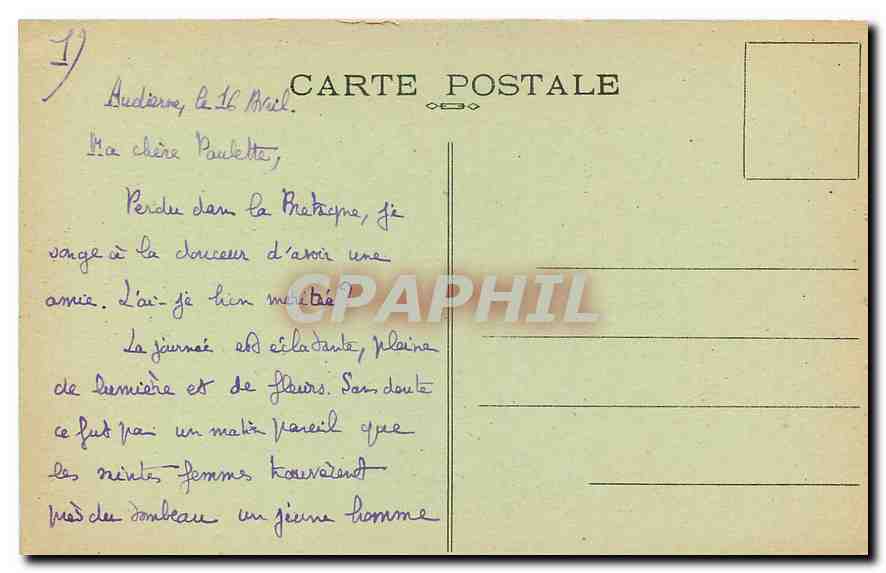 1)
CARTE POSTALE
Audierne, le 16 Avril.
Ma chère Paulette,
Perdu dans la Bretagne, je
songe à la douceur d'avoir une
amie. L'ai-je bien méritée?
La journée est éclatante, pleine
de lumière et de fleurs. Sans doute
ce fut par un matin pareil que
les saintes femmes trouvèrent
près du tombeau un jeune homme
CPAPHIL